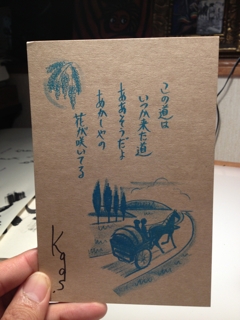 この道は
いつか来た道
ああそうだよ
あかしやの
花が咲いてる